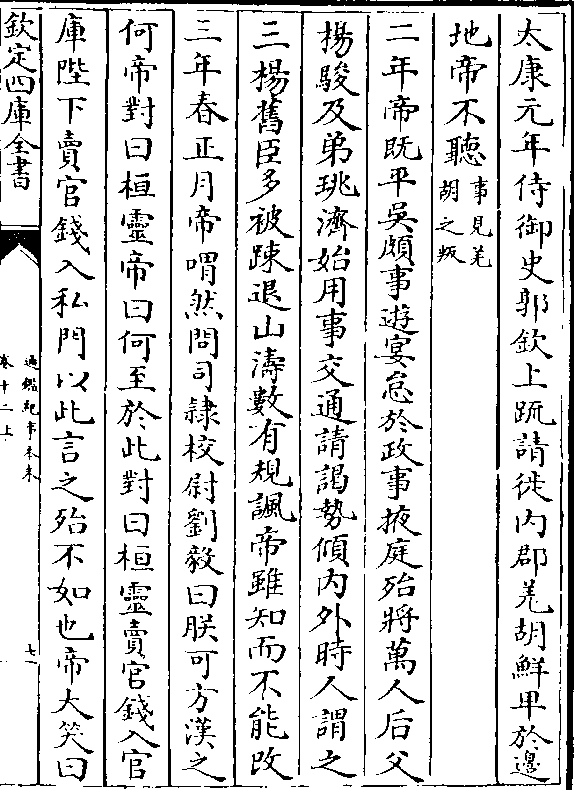 太康元年侍御史郭欽上䟽請徙内郡羌胡鮮卑於邊
地帝不聽事見羌
胡之叛
二年帝既平吳頗事遊宴怠於政事掖庭殆將萬人后父
楊駿及弟珧濟始用事交通請謁勢傾内外時人謂之
三楊舊臣多被踈退山濤數有規諷帝雖知而不能改
三年春正月帝喟然問司隷校尉劉毅曰朕可方漢之
何帝對曰桓靈帝曰何至於此對曰桓靈賣官錢入官
庫陛下賣官錢入私門以此言之殆不如也帝大笑曰
欽定四庫全書
通鑑紀事本末
卷十二上
七